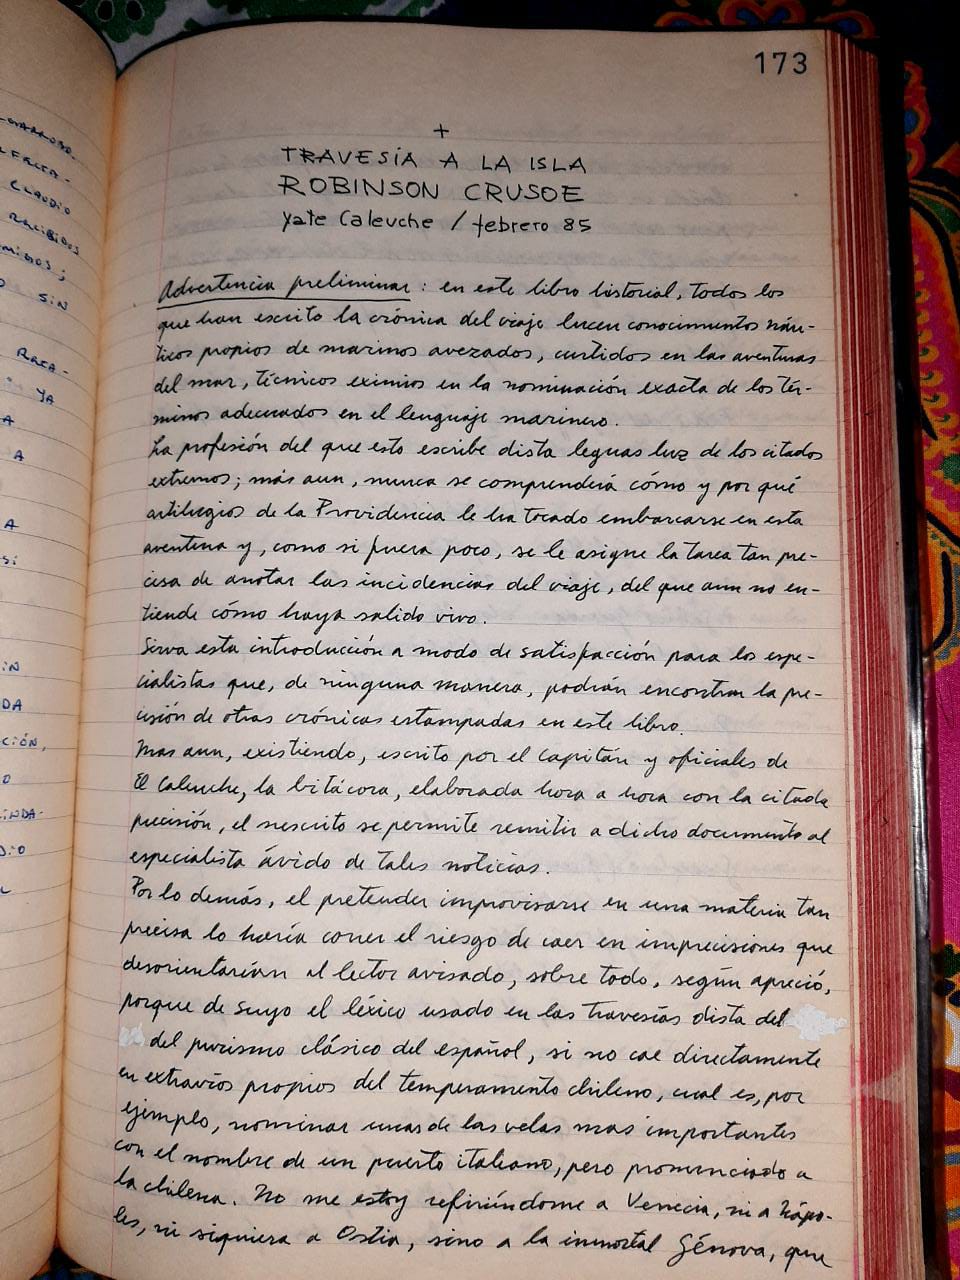 173
+
TRAVESÍA A LA ISLA
ROBINSON CRUSOE
Yate Caleuche / febrero 85
Advertencia preliminar : en este libro historial, todos los
que han escrito la crónica del viaje lucen conocimientos náu-
ticos propios de marinos avezados, curtidos en las aventuras
del mar, técnicos eximios en la nominación exacta de los tér-
minos adecuados en el lenguaje marinero.
La profesión del que esto escribe dista leguas luz de los citados
extremos; más aun, nunca se comprenderá cómo y por qué
artilugios de la Providencia le ha tocado embarcarse en esta
aventura y, como si fuera poco, se le asigne la tarea tan pre-
cisa de anotar las incidencias del viaje, del que aun no en-
tiende cómo haya salido vivo.
Sirva esta introducción a modo de satisfacción para los espe-
cialistas que, de ninguna manera, podrán encontrar la pre-
cisión de otras crónicas estampadas en este libro.
Mas aun, existiendo, escrito por el capitán y oficiales de
El Caleuche, la bitácora, elaborada hora a hora con la citada
precisión, el nescrito se permite remitir a dicho documento al
especialista ávido de tales noticias.
Por lo demás, el pretender improvisarse en una materia tan
precisa lo haría correr el riesgo de caer en imprecisiones que
desorientarían al lector avisado, sobre todo, según apreció,
porque de suyo el léxico usado en las travesías dista del
del purismo clásico del español, si no cae directamente
en extravíos propios del temperamento chileno, cual es, por
ejemplo, nominar unas de las velas mas importantes
con el nombre de un puerto italiano, pero pronunciado a
la chilena. No me estoy refiriéndome a Venecia, ni a Nápo-
les, ni siquiera a Ostia, sino a la inmortal Génova, que
CLAUDIO
RECIBIDOS
SIN
YA
A
A
A
DA
CIÓN,
O